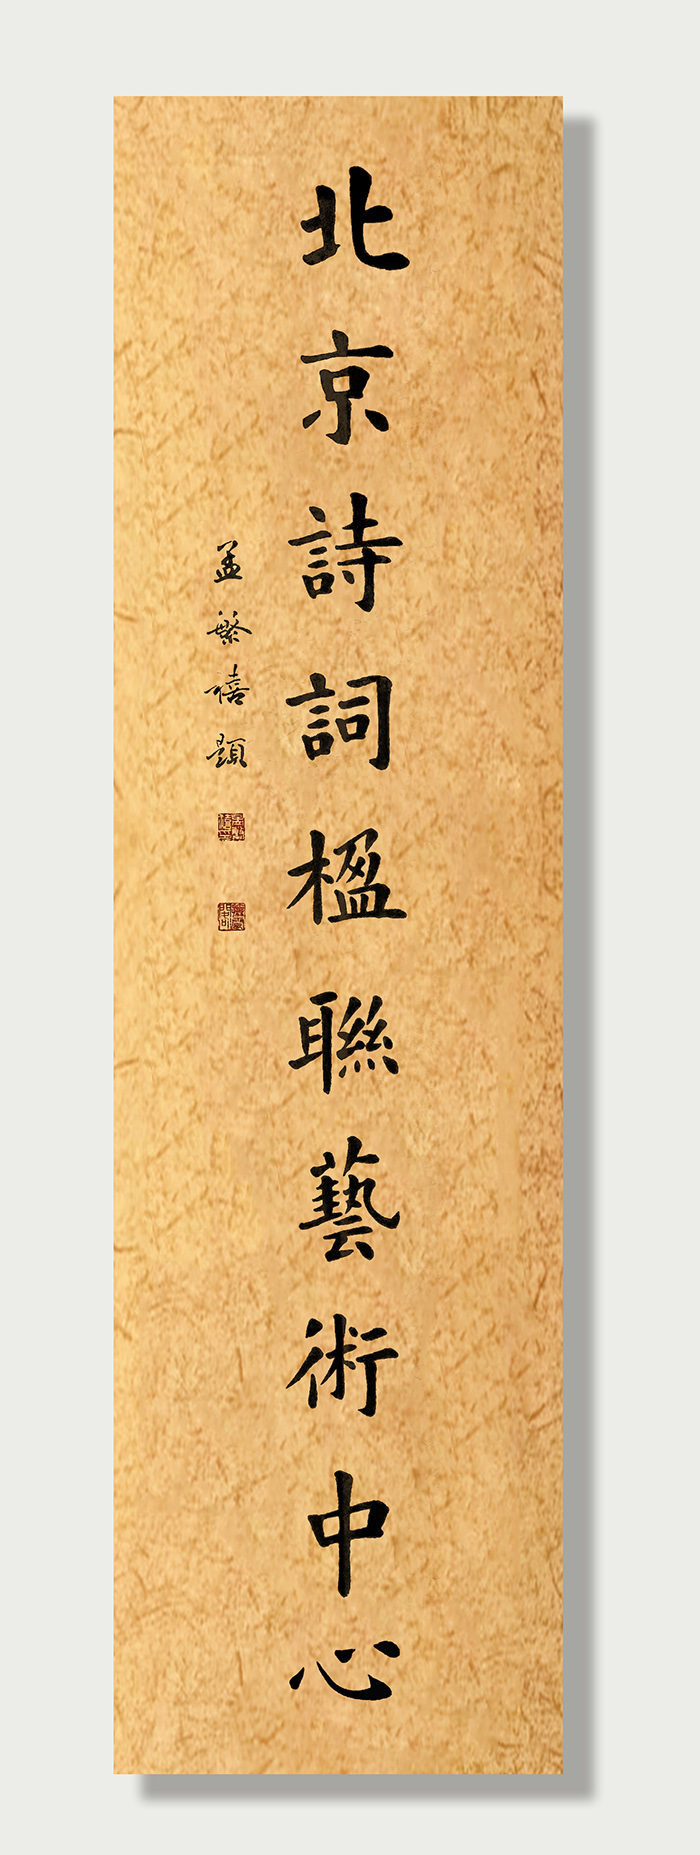 北京詩詞楹聯藝術中心
孟繁禧題